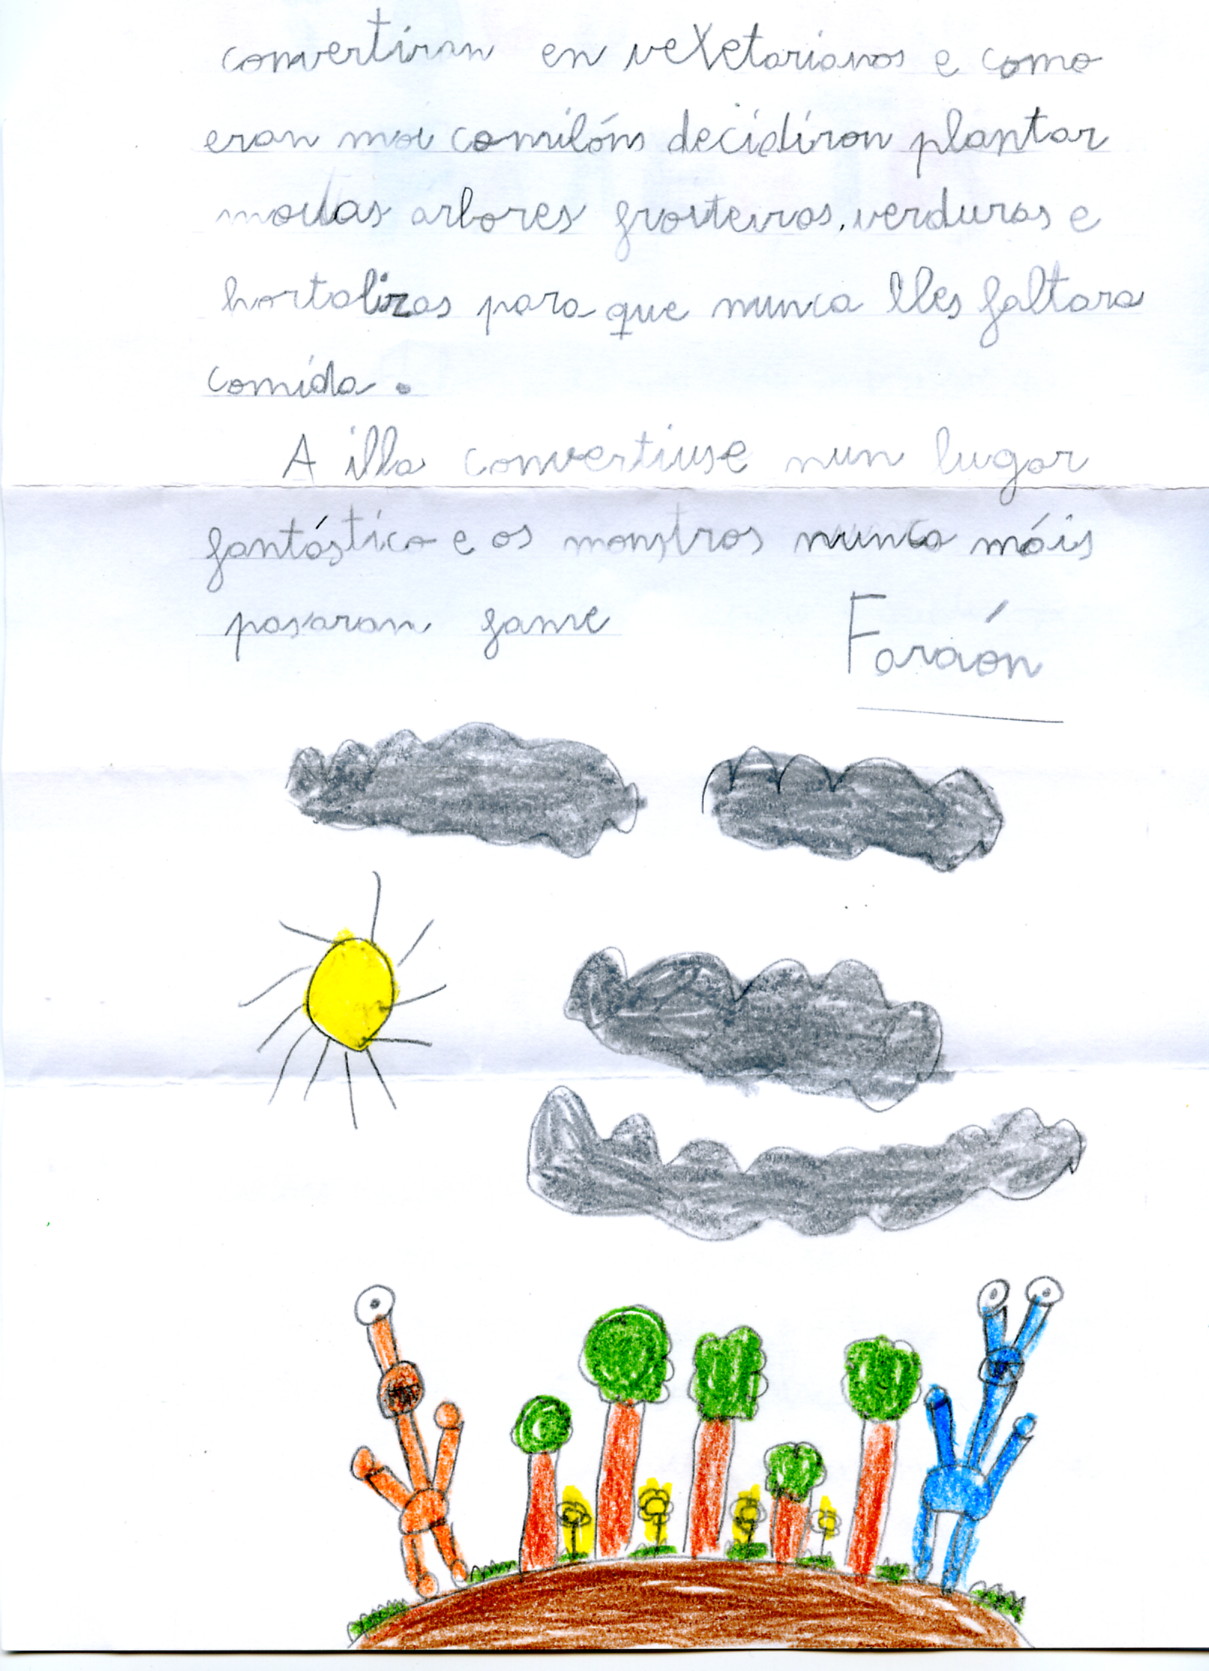 convertiran en vexetarianos e como
eran moi comilóns decidiron plantar
moitas arbores froiteiros, verduras e
hortalizas para que nunca lles faltara
comida.
A illa convertiuse nun lugar
fantástico e os monstros nunca máis
pasaran fame
Faraón